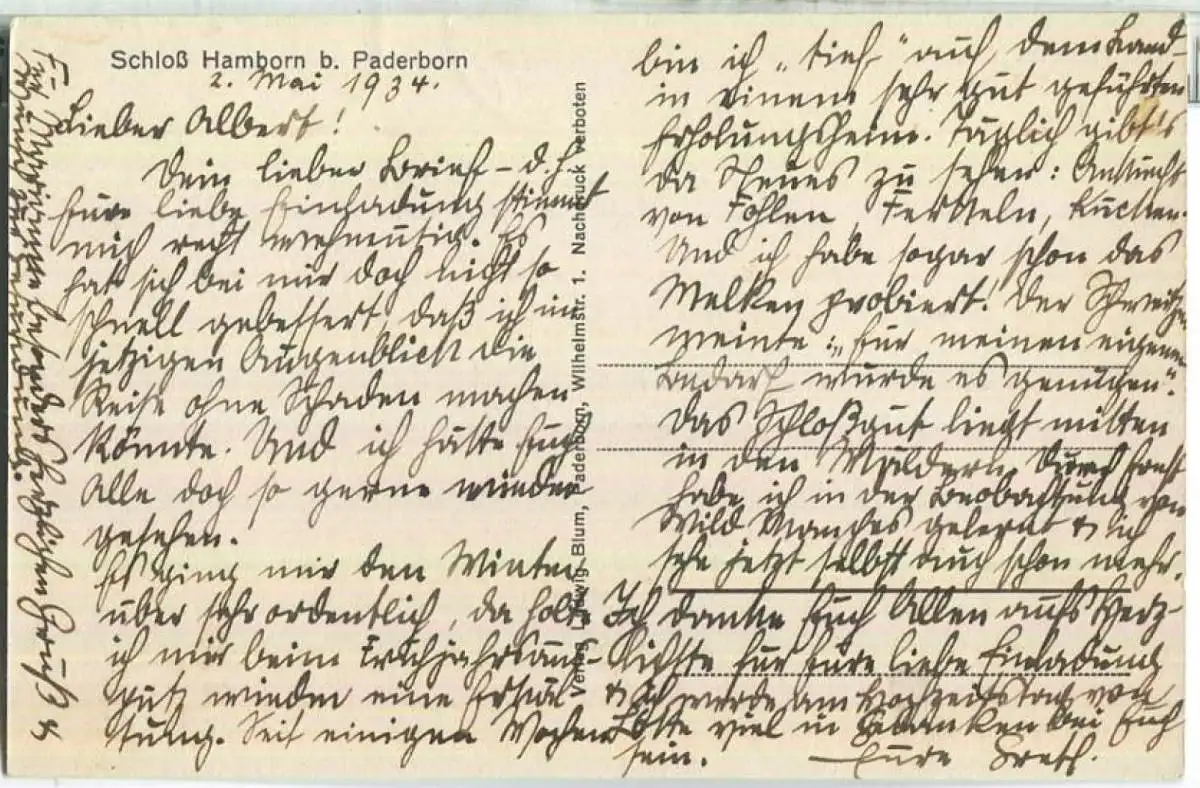 Schloß Hamborn b. Paderborn
2. Mai 1934.
Lieber Albert!
Dein lieber Brief – d. h.
Eure liebe Einladung stimmt
mich recht wehmütig. Es
hat sich bei mir doch nicht so
schnell gebessert, daß ich im
jetzigen Augenblick die
Reise ohne Schaden machen
könnte. Und ich hätte Euch
Alle doch so gerne wieder
gesehen.
Es ging mir den Winter
über sehr ordentlich, da holte
ich mir beim Frühjahrs
putz wieder eine Erkäl-
tung. Seit einigen Wochen
bin ich „tief“ auf dem Land
in einem sehr gut geführten
Erholungsheim. Täglich gibt's
da Neues zu sehen:
von Fohlen, Ferkeln, Kücken.
Und ich habe sogar schon das
Melken probiert. Der Schweizer
meinte: „für meinen eigenen
Bedarf würde es genügen“.
Das Schloßgut liegt mitten
in den Wäldern. Durch Ernst
habe ich in der Beobachtung von
Wild Manches gelernt & ich
sehe jetzt selbst auch schon mehr.
Ich danke Euch Allen aufs Herz-
lichste für Eure liebe Einladung
& ich werde am Hochzeitstag von
Lotte viel in Gedanken bei Euch
sein. Eure Greth.
herzlichen Gruß &
Verlag Ludwig Blum, Paderborn, Wilhelmstr. 1. Nachdruck verboten